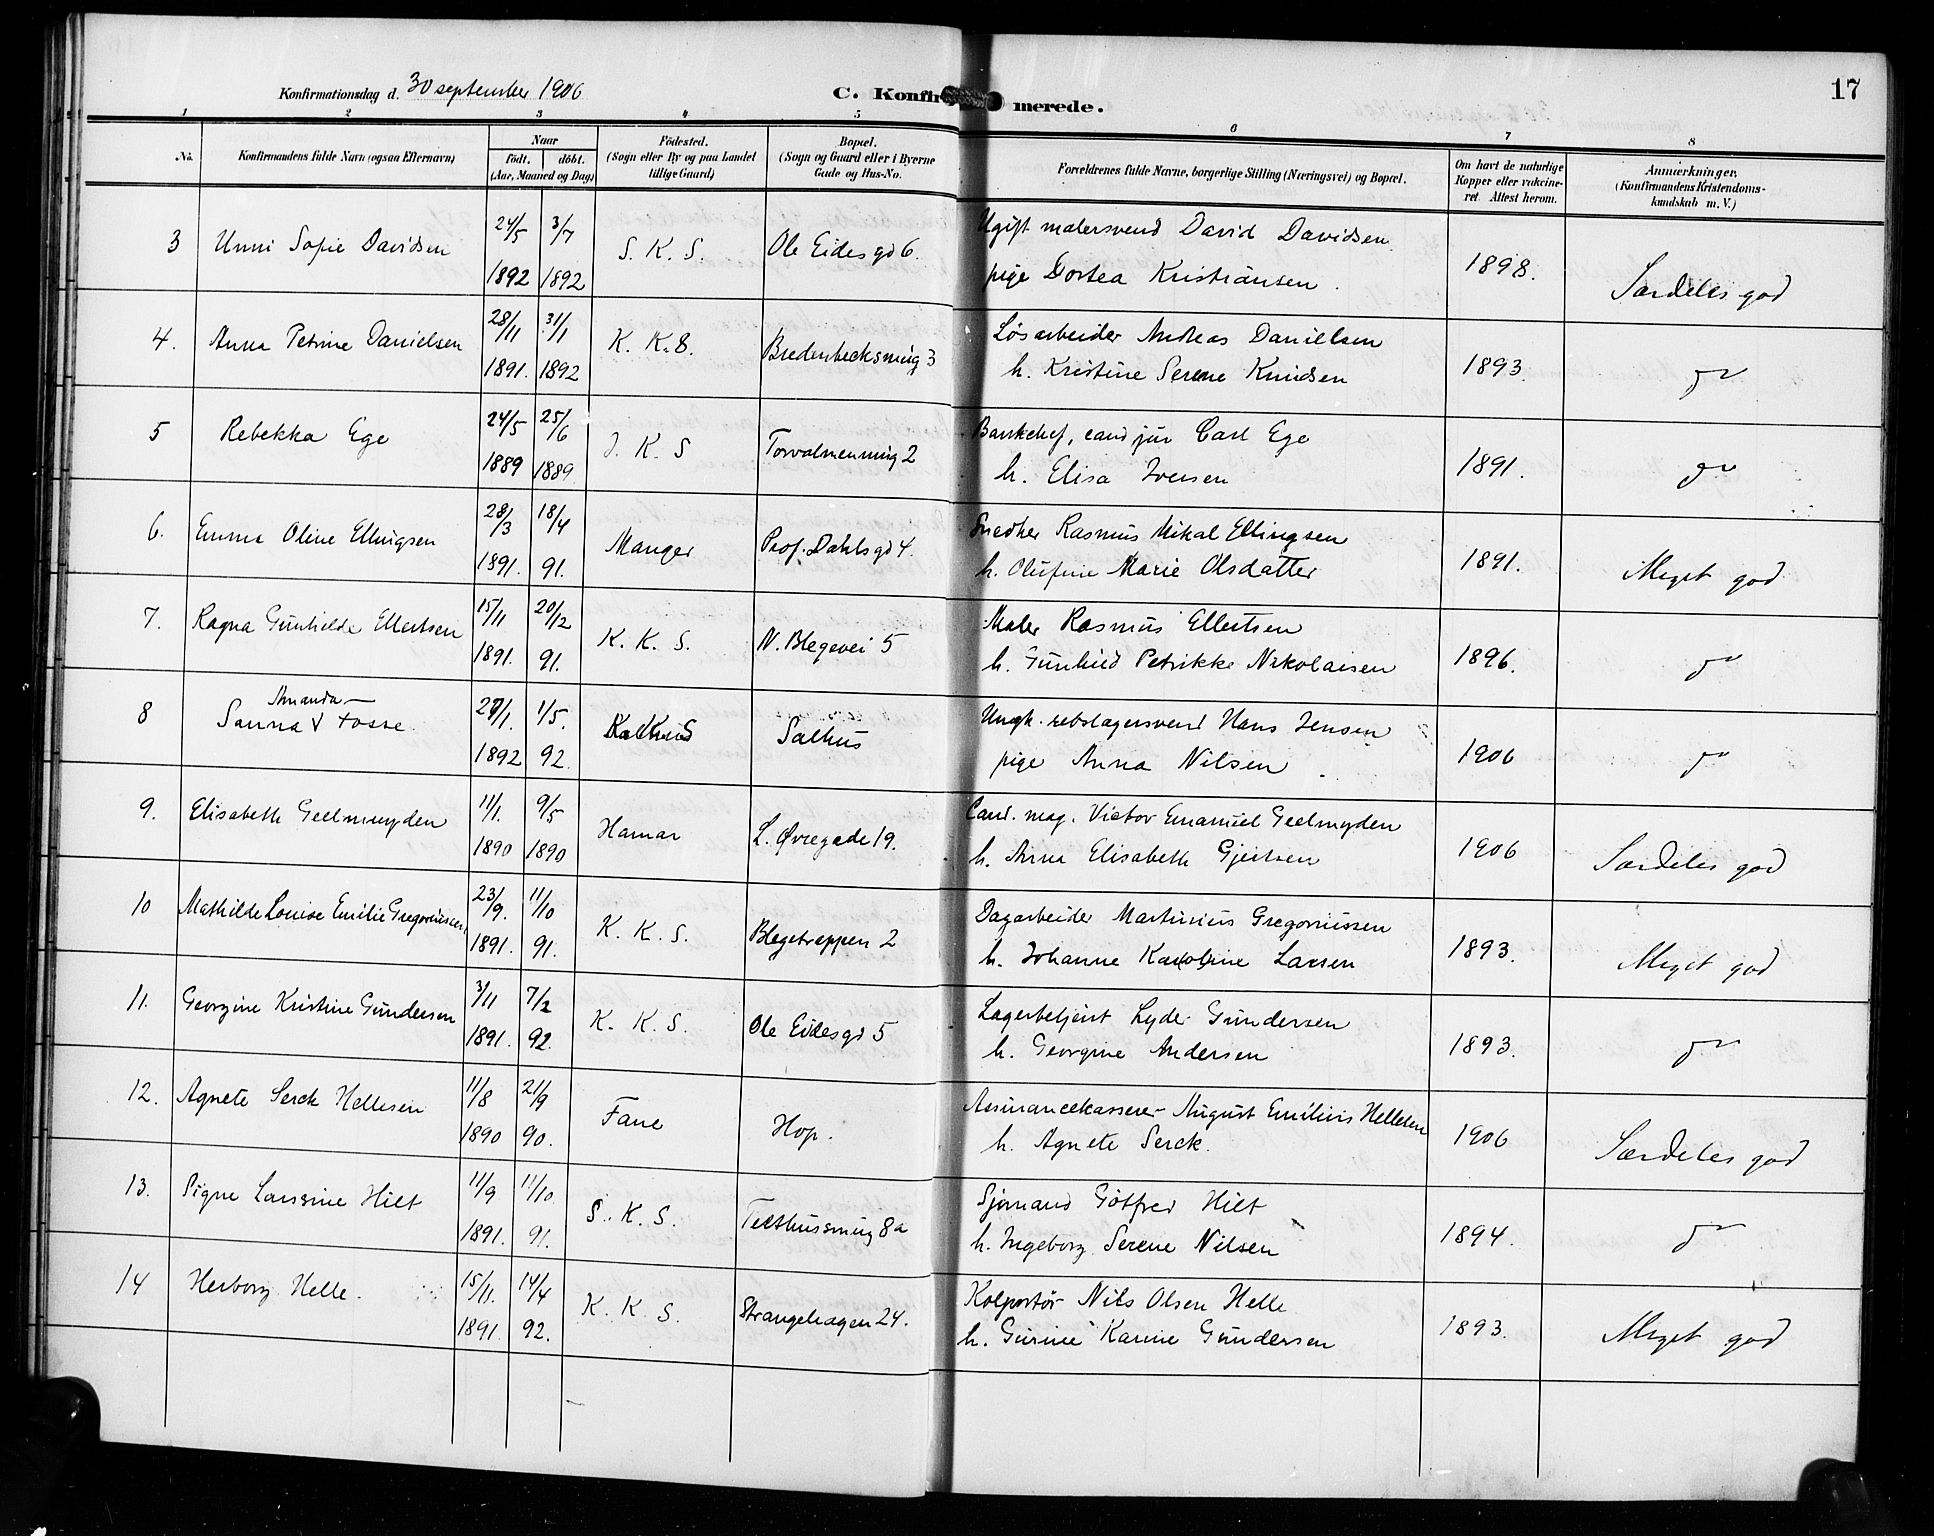 17
Konfirmationsdag d. 30 september 1906
C. Konfirmerede.
1 2 3 4 5 6 7 8
No. Konfirmandens fulde Navn (ogsaa Efternavn) Naar født. døbt. (Aar, Maaned og Dag) Fødested. (Sogn eller By og paa Landet tillige Gaard) Bopæl. (Sogn og Gaard eller i Byerne Gade og Hus-No. Forældrenes fulde Navne, borgerlige Stilling (Næringsvei) og Bopæl. Om havt de naturlige Kopper eller vakcineret. Attest herom. Anmærkninger. (Konfirmandens Kristendomskundskab m. V.)
3 Unni Sofie Davidsen 24/5 1892 3/7 1892 S. K. S. Ole Eides gd 6. Ugift malersvend David Davidsen
pige Dortea Kristiansen. 1898. Særdeles god
4. Anna Petrine Danielsen 28/11 1891. 31/1 1892 K. K. S. Bredenbecksmug 3 Løsarbeider Andreas Danielsen
h. Kristine Serene Knudsen 1893. do
5 Rebekka Ege 24/5 1889 25/6 1889. J. K. S Torvalmenning 2 Bankchef, cand jur Carl Ege
h. Elisa Iversen 1891. do
6. Emma Oline Ellingsen 28/3 1891. 18/4 91. Manger Prof. Dahlsgd 4. Snedker Rasmus Mikal Ellingsen
h. Olufine Marie Olsdatter 1891. Meget god
7. Ragna Gunhilde Ellertsen 15/11 1891. 20/12 91. K. K. S. N. Blegevei 5 Maler Rasmus Ellertsen
h. Gunhild Petrikke Nikolaisen 1896. do
8 Sanna V Amanda Fosse. 1892 1/5. 92. Salhus Ungk. rebslagersvend Hans Jensen
pige Anna Nilsen. 1906 do
9. Elisabeth Geelmuyden 11/1. 1890 9/5 1890 Hamar L. Øvregade 19. Cand. mag. Victor Emanuel Geelmyden
h. Anna Elisabeth Gjertsen 1906 Særdeles god
10 Mathilde Louise Emilie Gregoriussen 23/9. 1891. 11/10 91. K. K. S. Blegetrappen 2 Dagarbeider Martinius Gregoriussen
h. Johanne Karoline Larsen 1893. Meget god
11. Georgine Kristine Gundersen 3/11 1891. 7/2 92. K. K. S. Ole Eidesgd 5 Lagerbetjent Lyder Gundersen
h. Georgine Andersen 1893. do
12. Agnete Serck Hellesen 11/8 1890 21/9 90. Fane Hop. Assurancekasserer August Emilius Hellesen
h. Agnete Serck. 1906 Særdeles god
13. Signe Larssine Hilt 11/9 1891. 11/10 91. S. K. S. Telthussmug 8a Sjømand Gotfred Hilt
h. Ingeborg Serene Nilsen 1894. do
14 Herborg Helle. 15/11. 1891. 14/4 92. K. K. S. Strangehagen 24. Kolportør Nils Olsen Helle
h. Gurine Karine Gundersen 1893. Meget god